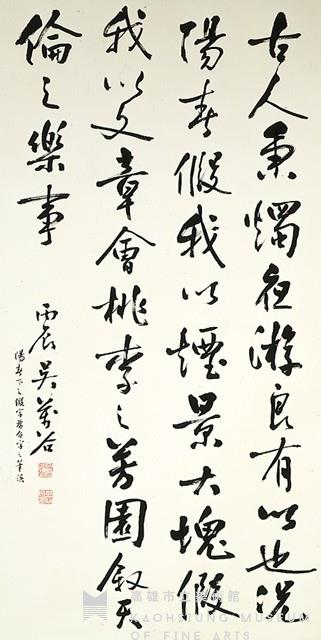 古人秉燭夜游良有以也況
陽春假我以煙景大塊假
我以文章會桃李之芳園敘天
倫之樂事
丙辰吳萬谷
陽春下之假字為召字之筆誤
高雄市立美術館
KAOHSIUNG MUSEUM
OF FINE ARTS